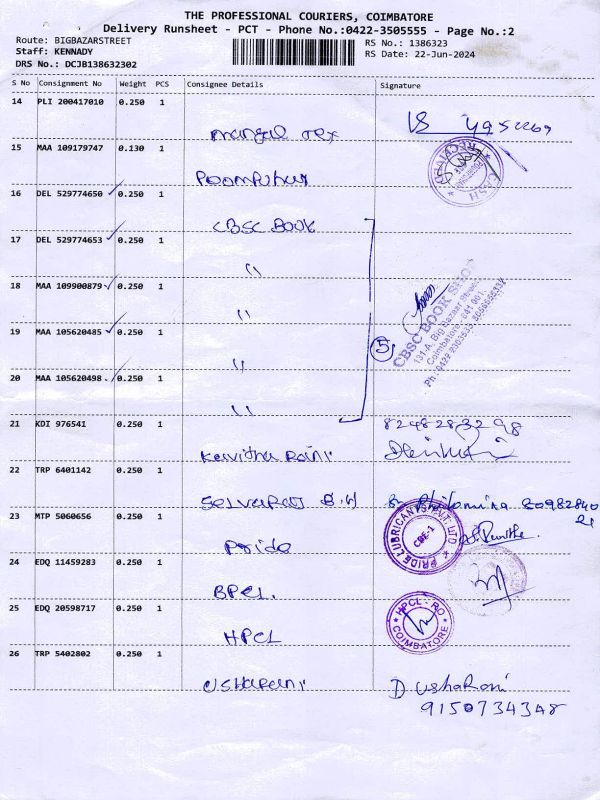 THE PROFESSIONAL COURIERS, COIMBATORE
Delivery Runsheet - PCT - Phone No.:0422-3505555 - Page No.:2
Route: BIGBAZARSTREET RS No.: 1386323
Staff: KENNADY RS Date: 22-Jun-2024
DRS No.: DCJB138632302
S No Consignment No Weight PCS Consignee Details Signature
14 PLI 200417010 0.250 1
mangal Tex
15 MAA 109179747 0.130 1
Poompuhar
16 DEL 529774650 ✓ 0.250 1
CBSC BOOK
17 DEL 529774653 ✓ 0.250 1
"
18 MAA 109900879 ✓ 0.250 1
"
CBSC BOOK SHOP
131-A, Big Bazaar Street,
Coimbatore - 641 001.
19 MAA 105620485 ✓ 0.250 1
"
5
20 MAA 105620498 ✓ 0.250 1
"
21 KDI 976541 0.250 1 8248283298
Kavitha Rani
22 TRP 6401142 0.250 1
Selvaraj B.H Philomina
23 MTP 5060656 0.250 1
Pride
PRIDE LUBRICANTS PVT LTD
CBE-1
24 EDQ 11459283 0.250 1
BPCL.
25 EDQ 20598717 0.250 1
HPCL
HPCL - RO
COIMBATORE
26 TRP 5402802 0.250 1
USHARANI D UshaRani
9150734348